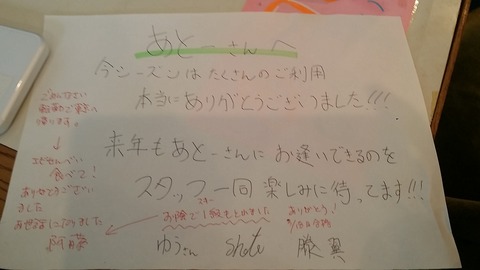 あとーさんへ
今シーズンはたくさんのご利用
本当にありがとうございました!!!
来年もあとーさんにお逢いできるのを
スタッフ一同楽しみに待ってます!!!
ごめんなさい
帰ります。
↓
エビせんべい
食べて!
ありがとうござい
ました
お世話になりました
阿藤
スキー
お陰で1級もとれました
ありがとう!
ゆうさん